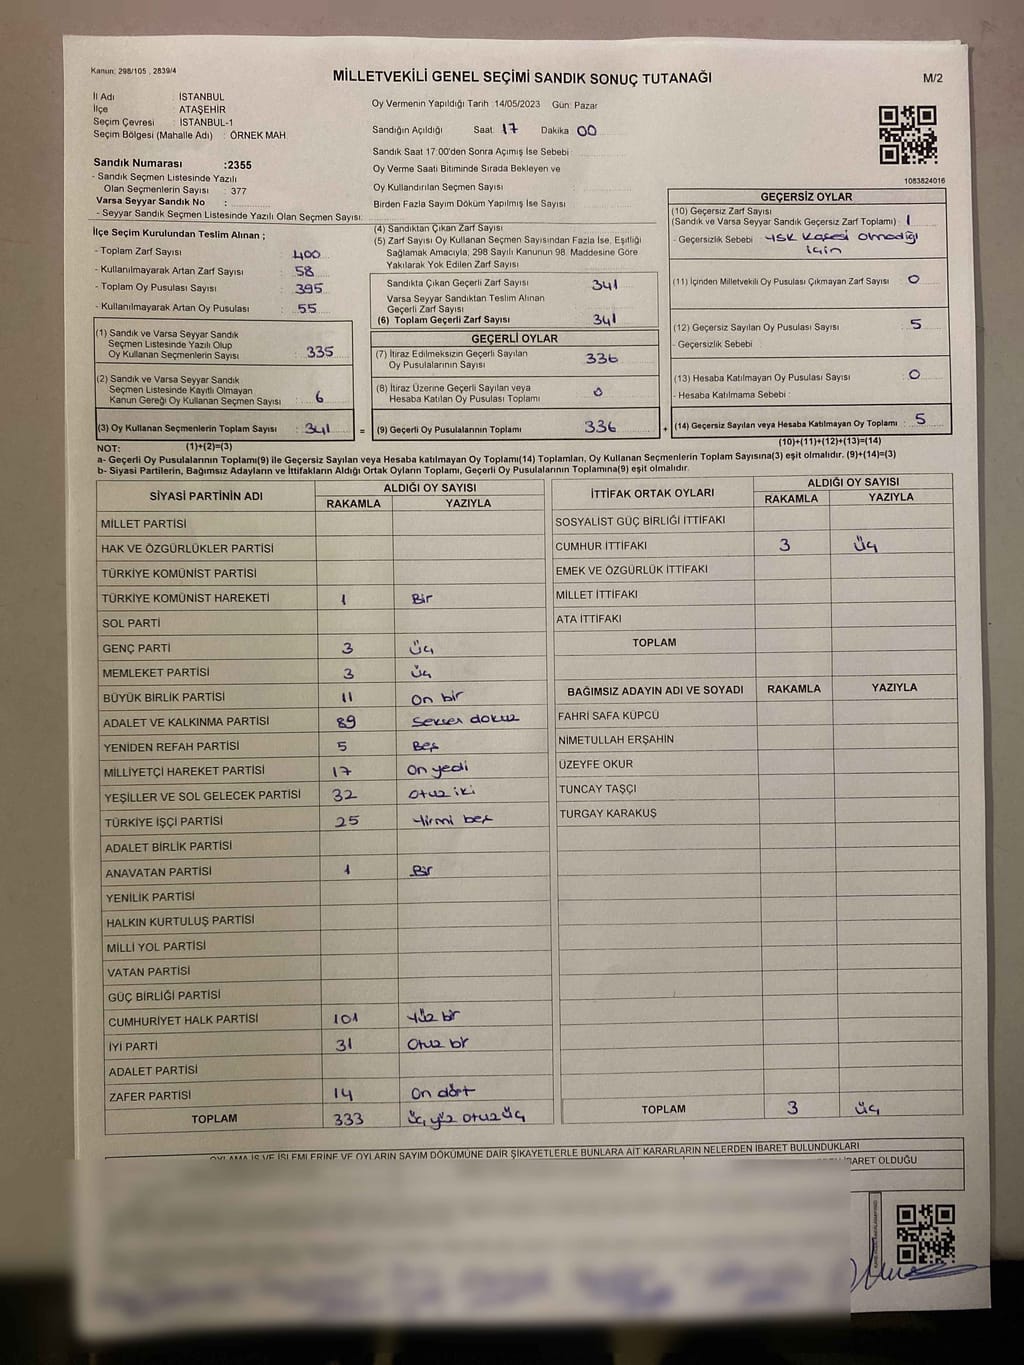 Kanun: 298/105 , 2839/4
MİLLETVEKİLİ GENEL SEÇİMİ SANDIK SONUÇ TUTANAĞI
M/2
İl Adı : İSTANBUL
İlçe : ATAŞEHİR
Seçim Çevresi : İSTANBUL-1
Seçim Bölgesi (Mahalle Adı) : ÖRNEK MAH.
Sandık Numarası :2355
- Sandık Seçmen Listesinde Yazılı
Olan Seçmenlerin Sayısı : 377
Varsa Seyyar Sandık No :
- Seyyar Sandık Seçmen Listesinde Yazılı Olan Seçmen Sayısı:
Oy Vermenin Yapıldığı Tarih :14/05/2023 Gün: Pazar
Sandığın Açıldığı Saat: 17 Dakika: 00
Sandık Saat 17:00'den Sonra Açımış İse Sebebi :
Oy Verme Saati Bitiminde Sırada Bekleyen ve
Oy Kullandırılan Seçmen Sayısı :
Birden Fazla Sayım Döküm Yapılmış İse Sayısı :
1083824016
İlçe Seçim Kurulundan Teslim Alınan ;
- Toplam Zarf Sayısı : 400
- Kullanılmayarak Artan Zarf Sayısı : 58
- Toplam Oy Pusulası Sayısı : 395
- Kullanılmayarak Artan Oy Pusulası : 55
(1) Sandık ve Varsa Seyyar Sandık
Seçmen Listesinde Yazılı Olup
Oy Kullanan Seçmenlerin Sayısı : 335
(2) Sandık ve Varsa Seyyar Sandık
Seçmen Listesinde Kayıtlı Olmayan
Kanun Gereği Oy Kullanan Seçmen Sayısı : 6
(3) Oy Kullanan Seçmenlerin Toplam Sayısı : 341
(4) Sandıktan Çıkan Zarf Sayısı
(5) Zarf Sayısı Oy Kullanan Seçmen Sayısından Fazla İse, Eşitliği
Sağlamak Amacıyla; 298 Sayılı Kanunun 98. Maddesine Göre
Yakılarak Yok Edilen Zarf Sayısı
Sandıkta Çıkan Geçerli Zarf Sayısı : 341
Varsa Seyyar Sandıktan Teslim Alınan
Geçerli Zarf Sayısı
(6) Toplam Geçerli Zarf Sayısı : 341
GEÇERLİ OYLAR
(7) İtiraz Edilmeksizin Geçerli Sayılan
Oy Pusulalarının Sayısı : 336
(8) İtiraz Üzerine Geçerli Sayılan veya
Hesaba Katılan Oy Pusulası Toplamı : 0
= (9) Geçerli Oy Pusulalarının Toplamı : 336 +
GEÇERSİZ OYLAR
(10) Geçersiz Zarf Sayısı
(Sandık ve Varsa Seyyar Sandık Geçersiz Zarf Toplamı) : 1
- Geçersizlik Sebebi : YSK Kaşesi olmadığı
için
(11) İçinden Milletvekili Oy Pusulası Çıkmayan Zarf Sayısı : 0
(12) Geçersiz Sayılan Oy Pusulası Sayısı : 5
- Geçersizlik Sebebi :
(13) Hesaba Katılmayan Oy Pusulası Sayısı : 0
- Hesaba Katılmama Sebebi :
(14) Geçersiz Sayılan veya Hesaba Katılmayan Oy Pusulası Toplamı : 5
NOT: (1)+(2)=(3)
(10)+(11)+(12)+(13)=(14)
a- Geçerli Oy Pusulalarının Toplamı(9) ile Geçersiz Sayılan veya Hesaba katılmayan Oy Toplamı(14) Toplamları, Oy Kullanan Seçmenlerin Toplam Sayısına(3) eşit olmalıdır. (9)+(14)=(3)
b- Siyasi Partilerin, Bağımsız Adayların ve İttifakların Aldığı Ortak Oyların Toplamı, Geçerli Oy Pusulalarının Toplamına(9) eşit olmalıdır.
SİYASİ PARTİNİN ADI ALDIĞI OY SAYISI
RAKAMLA YAZIYLA
MİLLET PARTİSİ
HAK VE ÖZGÜRLÜKLER PARTİSİ
TÜRKİYE KOMÜNİST PARTİSİ
TÜRKİYE KOMÜNİST HAREKETİ 1 Bir
SOL PARTİ
GENÇ PARTİ 3 üç
MEMLEKET PARTİSİ 3 üç
BÜYÜK BİRLİK PARTİSİ 11 on bir
ADALET VE KALKINMA PARTİSİ 89 seksen dokuz
YENİDEN REFAH PARTİSİ 5 Beş
MİLLİYETÇİ HAREKET PARTİSİ 17 on yedi
YEŞİLLER VE SOL GELECEK PARTİSİ 32 otuz iki
TÜRKİYE İŞÇİ PARTİSİ 25 Yirmi beş
ADALET BİRLİK PARTİSİ
ANAVATAN PARTİSİ 1 Bir
YENİLİK PARTİSİ
HALKIN KURTULUŞ PARTİSİ
MİLLİ YOL PARTİSİ
VATAN PARTİSİ
GÜÇ BİRLİĞİ PARTİSİ
CUMHURİYET HALK PARTİSİ 101 Yüz bir
İYİ PARTİ 31 Otuz bir
ADALET PARTİSİ
ZAFER PARTİSİ 14 On dört
TOPLAM 333 üç yüz otuz üç
İTTİFAK ORTAK OYLARI ALDIĞI OY SAYISI
RAKAMLA YAZIYLA
SOSYALİST GÜÇ BİRLİĞİ İTTİFAKI
CUMHUR İTTİFAKI 3 üç
EMEK VE ÖZGÜRLÜK İTTİFAKI
MİLLET İTTİFAKI
ATA İTTİFAKI
TOPLAM
BAĞIMSIZ ADAYIN ADI VE SOYADI RAKAMLA YAZIYLA
FAHRİ SAFA KÜPCÜ
NİMETULLAH ERŞAHİN
ÜZEYFE OKUR
TUNCAY TAŞÇI
TURGAY KARAKUŞ
TOPLAM 3 üç
OYLAMA İŞ VE İŞLEMLERİNE VE OYLARIN SAYIM DÖKÜMÜNE DAİR ŞİKAYETLERLE BUNLARA AİT KARARLARIN NELERDEN İBARET BULUNDUKLARI
İBARET OLDUĞU